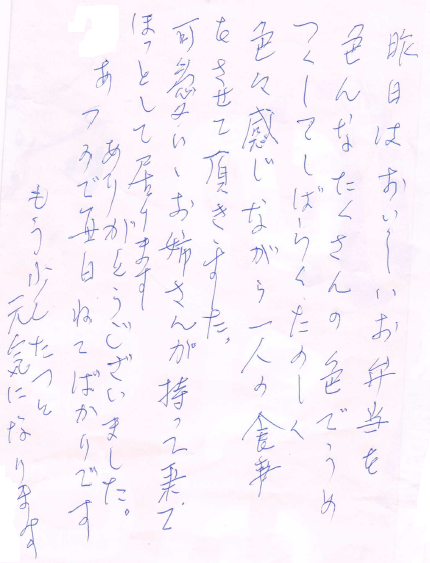 昨日はおいしいお弁当を
色んなたくさんの色でうめ
つくしてしばらくたのしく
色々感じながら一人の食事
をさせて頂きました。
可愛いいお姉さんが持って来て
ほっとして居ります
ありがとうございました。
あつさで毎日ねてばかりです
もう少したつと
元気になります